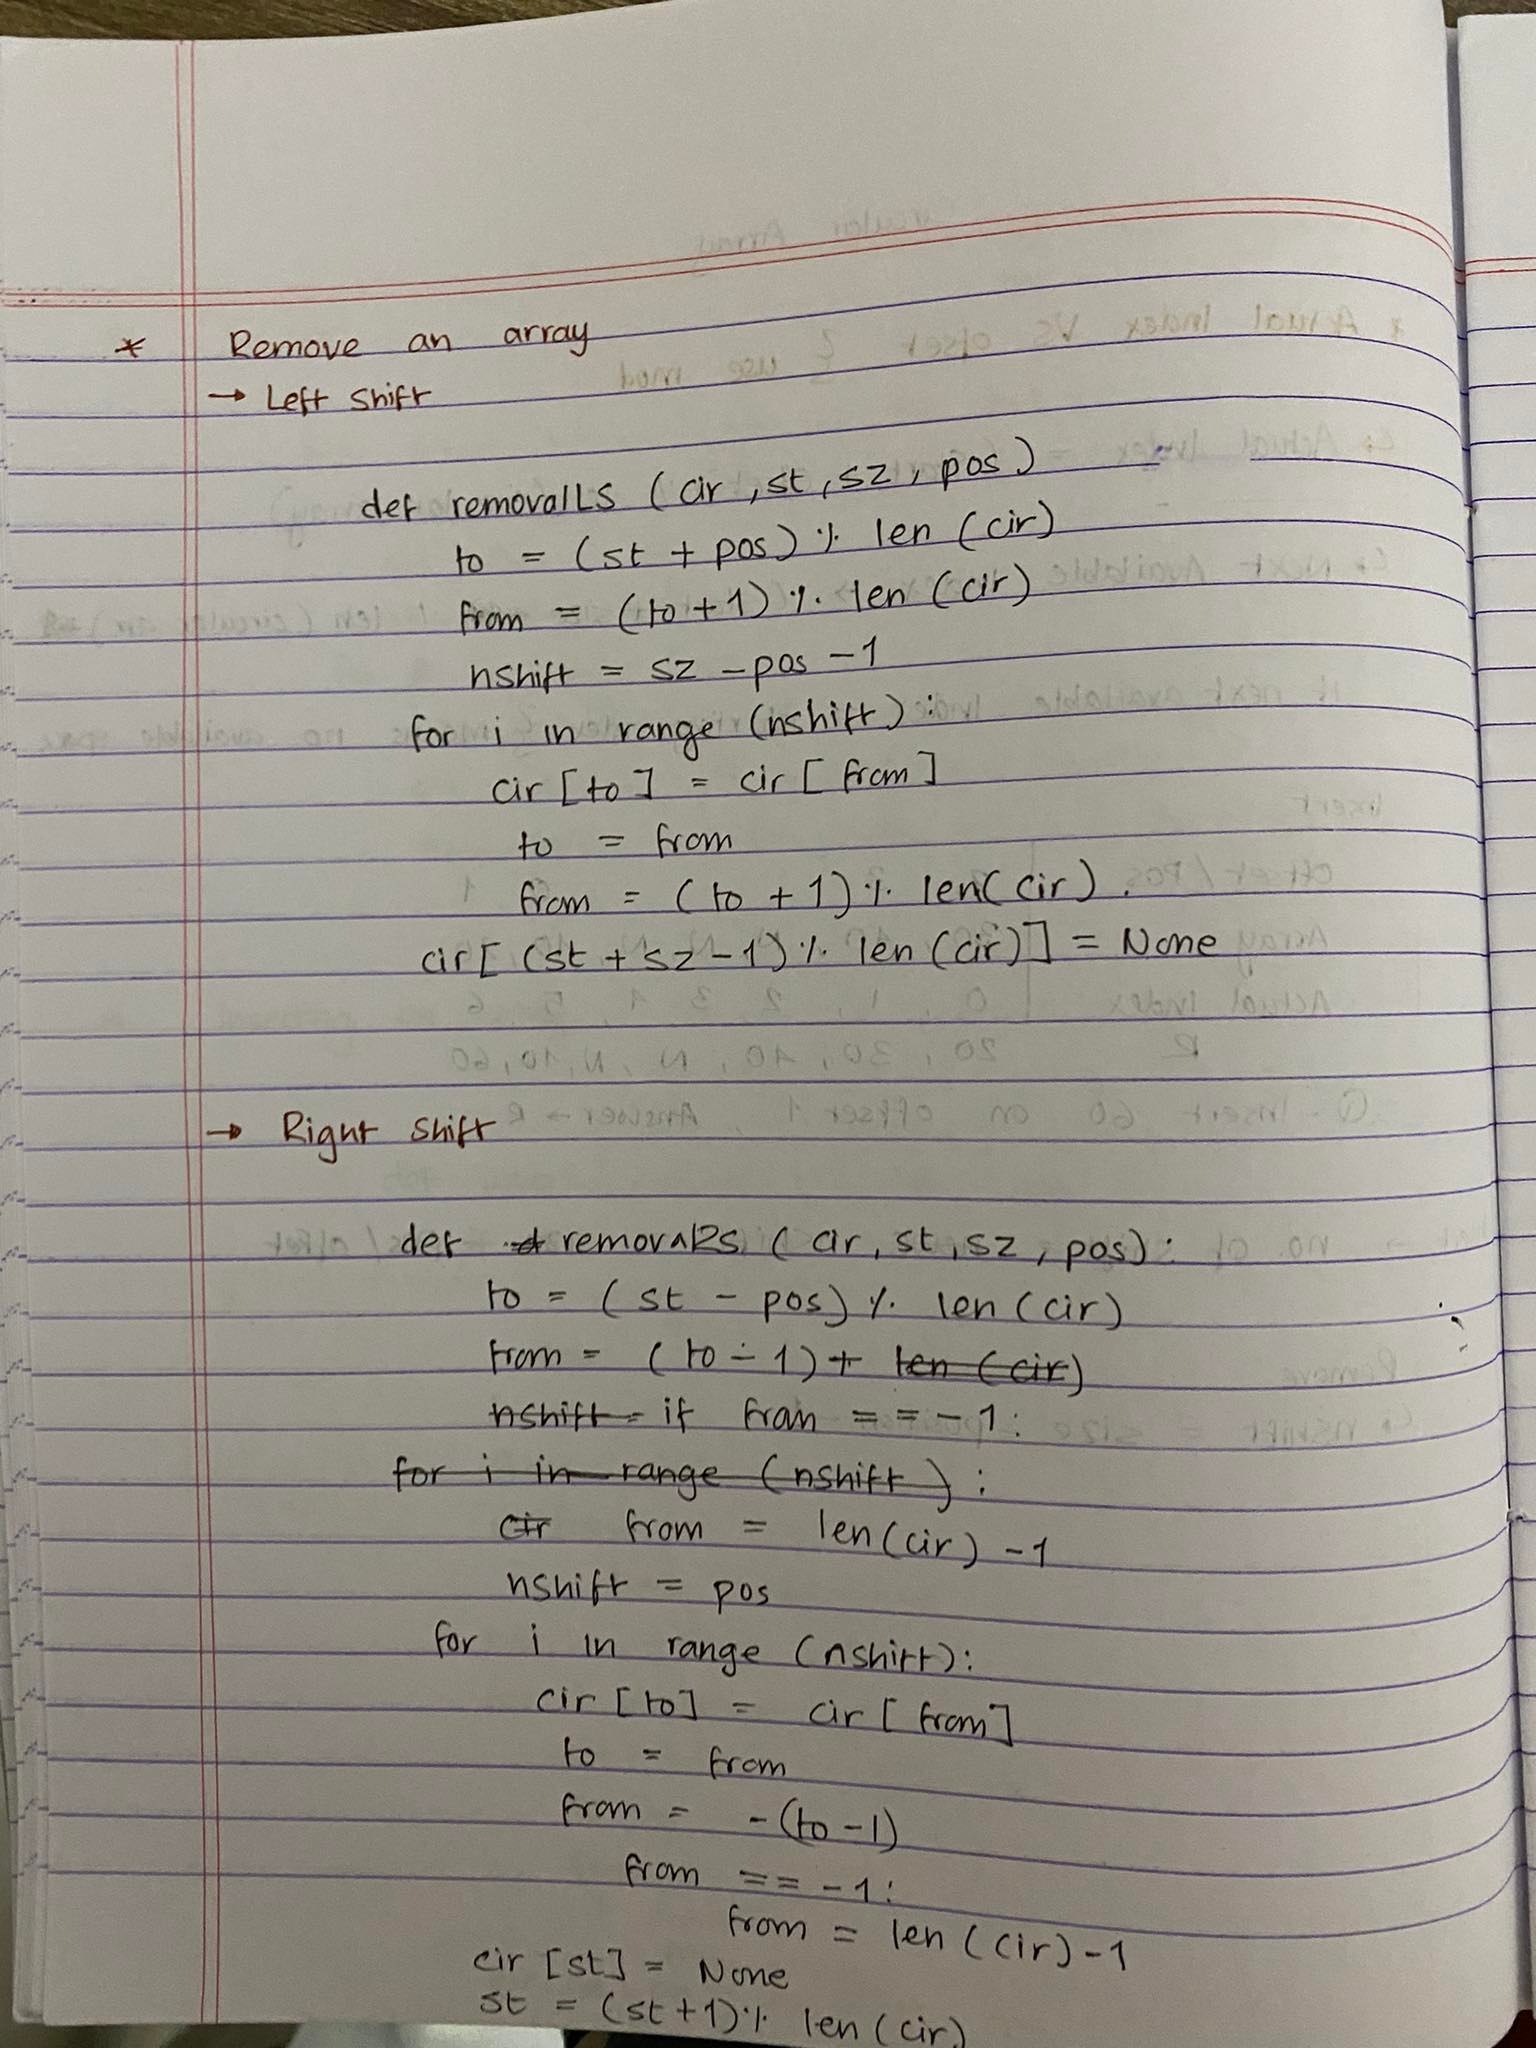 * Remove an array
→ Left Shift
def removalLS (cir, st, sz, pos)
to = (st + pos) % len (cir)
from = (to + 1) % len (cir)
nshift = sz - pos - 1
for i in range (nshift):
cir [to] = cir [from]
to = from
from = (to + 1) % len(cir).
cir[ (st + sz - 1) % len (cir)] = None
→ Right Shift
def removalRS (cir, st, sz, pos):
to = (st - pos) % len (cir)
from = (to - 1) + len (cir)
nshift = if from == -1:
for i in range (nshift):
cir from = len(cir) - 1
nshift = pos
for i in range (nshift):
cir [to] = cir [from]
to = from
from = - (to - 1)
from == -1:
from = len (cir) - 1
cir [st] = None
st = (st + 1) % len (cir)